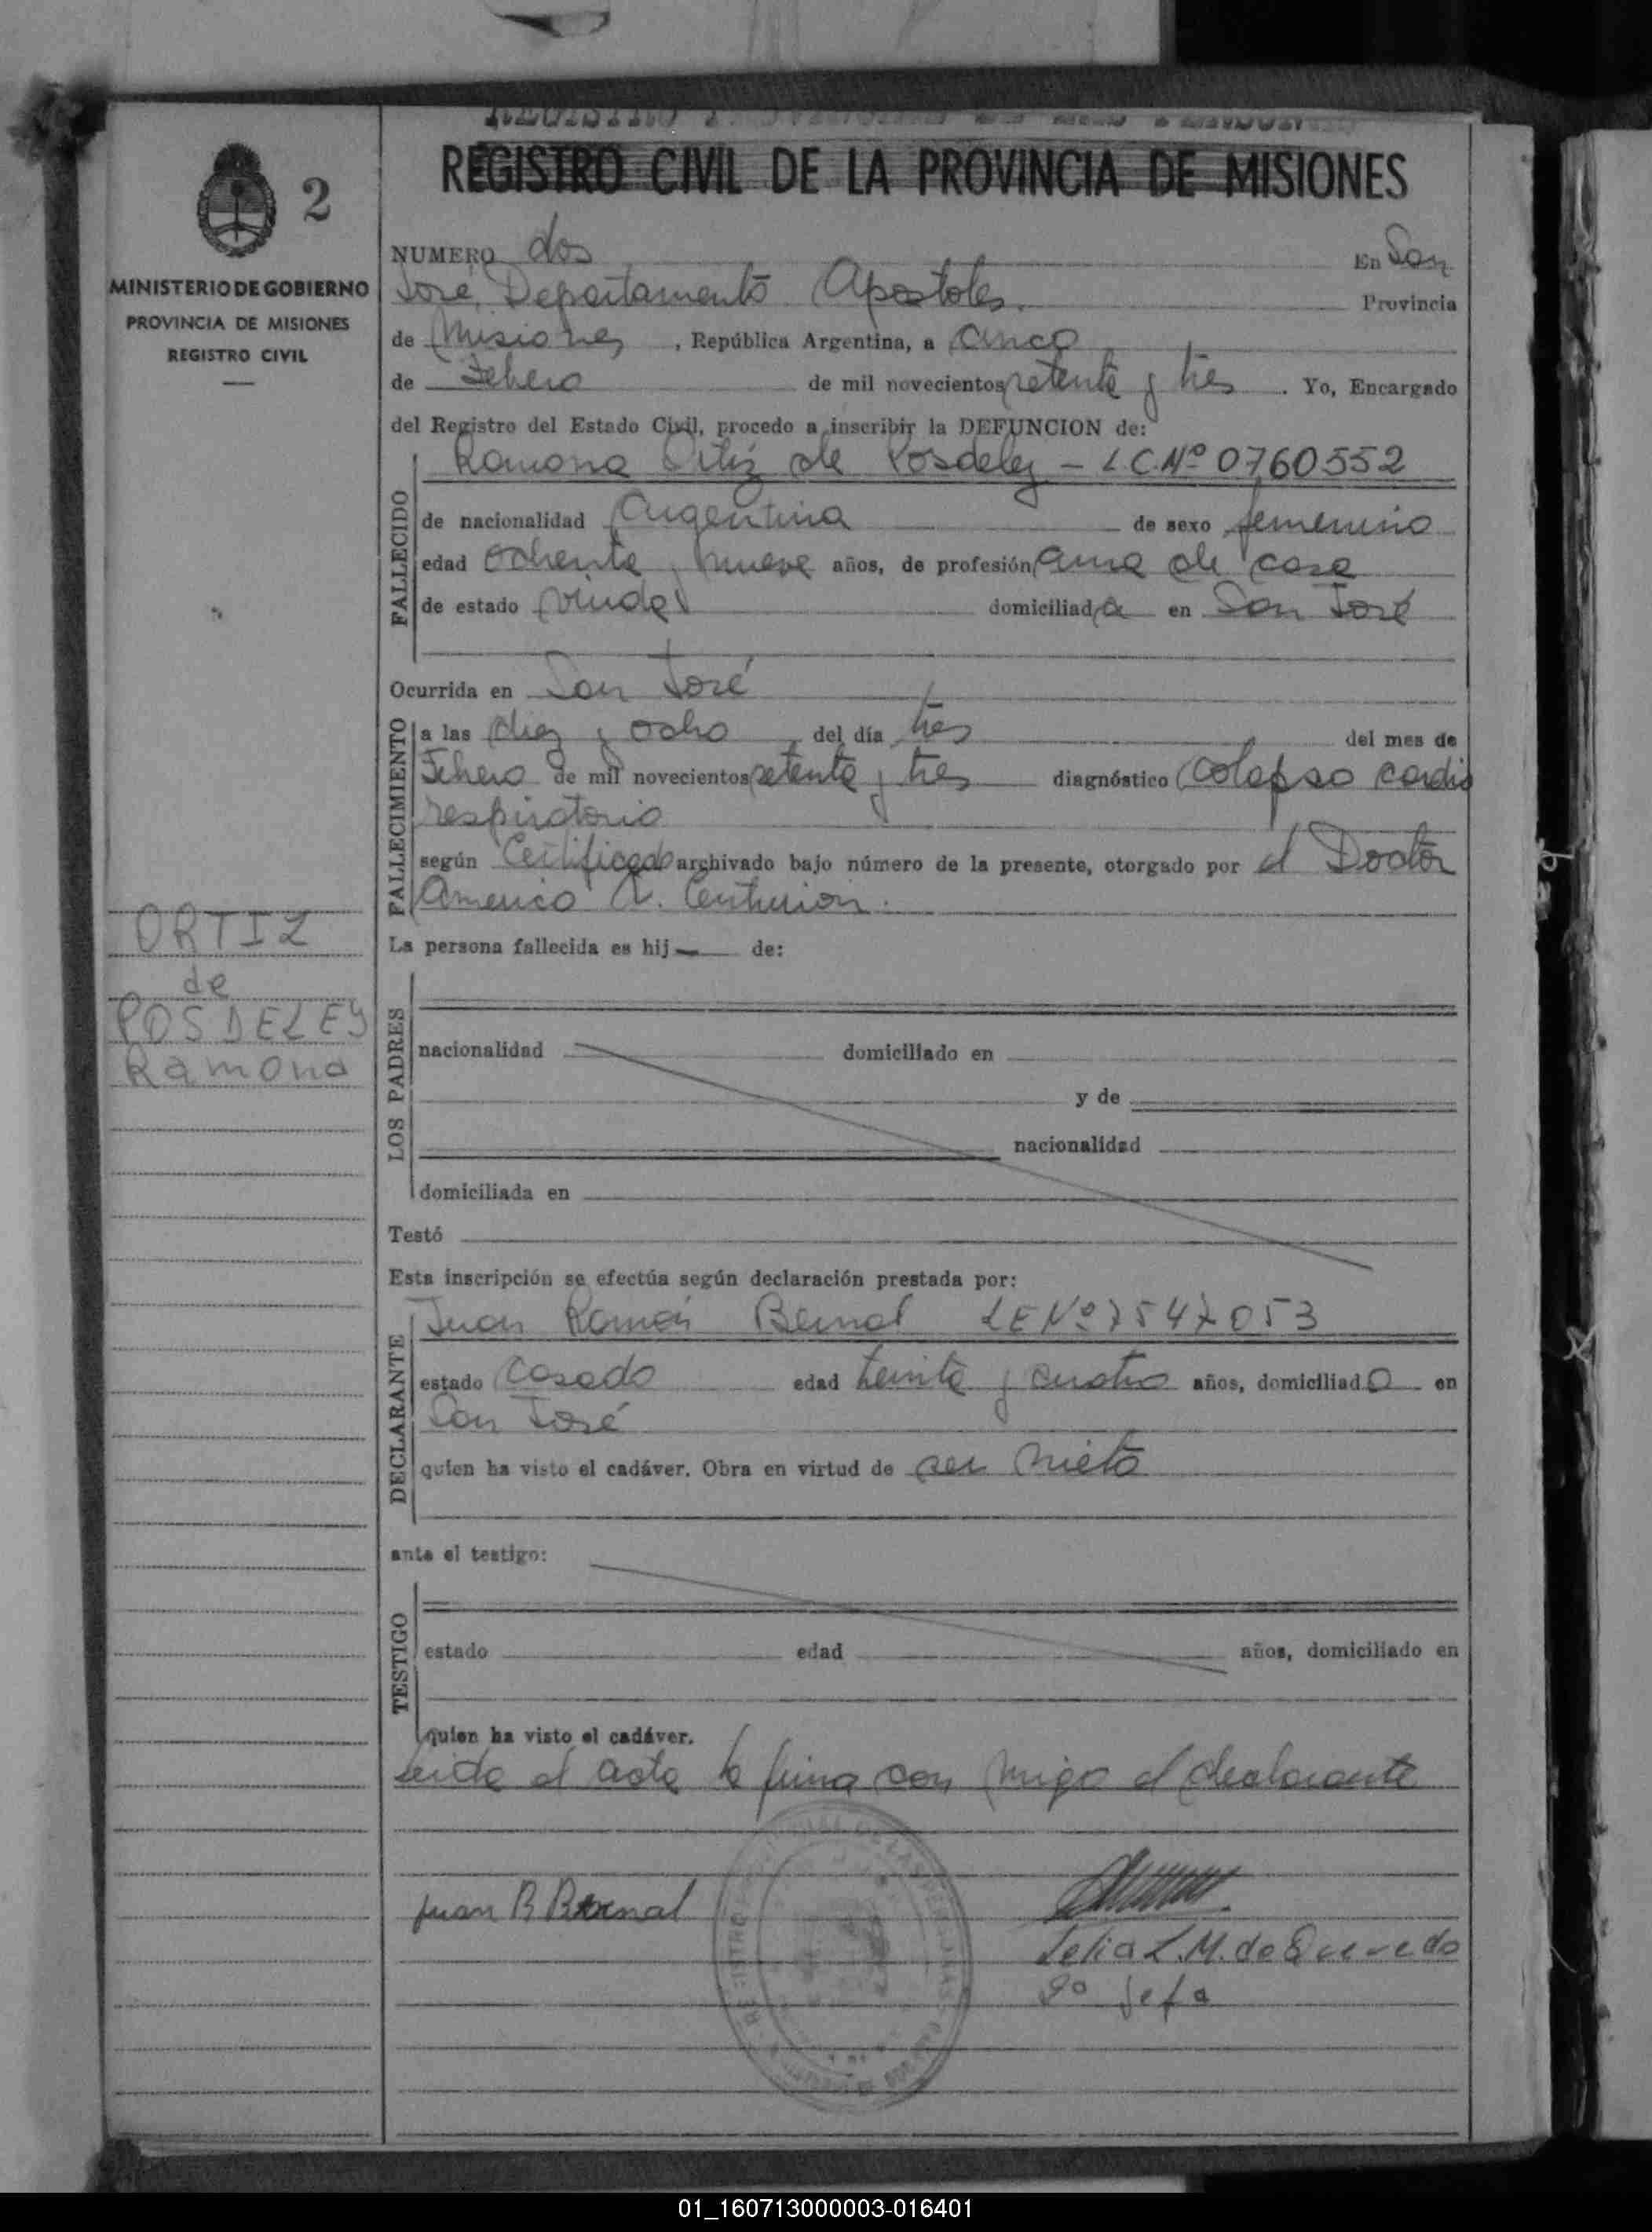 REGISTRO CIVIL DE LA PROVINCIA DE MISIONES
2
MINISTERIO DE GOBIERNO
PROVINCIA DE MISIONES
REGISTRO CIVIL
ORTIZ
de
POSDELEY
Ramona
NUMERO dos En San
José, Departamento Apostoles. Provincia
de Misiones, República Argentina, a cinco
de Febero de mil novecientos setenta y tres. Yo, Encargado
del Registro del Estado Civil, procedo a inscribir la DEFUNCION de:
FALLECIDO
Ramona Ortiz de Posdeley - L.C.Nº 0760552
de nacionalidad Argentina de sexo femenino
edad ochenta y nueve años, de profesión ama de casa
de estado viuda domiciliada en San José
Ocurrida en San José
FALLECIMIENTO
a las diez y ocho del día tres del mes de
Febero de mil novecientos setenta y tres diagnóstico Colapso cardio
respiratorio
según Certificado archivado bajo número de la presente, otorgado por el Doctor
Americo A. Centurion.
La persona fallecida es hij— de:
LOS PADRES
nacionalidad domiciliado en
y de
nacionalidad
domiciliada en
Testó
Esta inscripción se efectúa según declaración prestada por:
DECLARANTE
Juan Ramón Bernal LE Nº 7547053
estado Casado edad treinta y cuatro años, domiciliado en
San José
quien ha visto el cadáver. Obra en virtud de ser nieto
ante el testigo:
TESTIGO
estado edad años, domiciliado en
quien ha visto el cadáver.
Leida el acta la firma con migo el declarante
Juan R Bernal
Lelia L. M. de Quevedo
2º Jefa
01_160713000003-016401